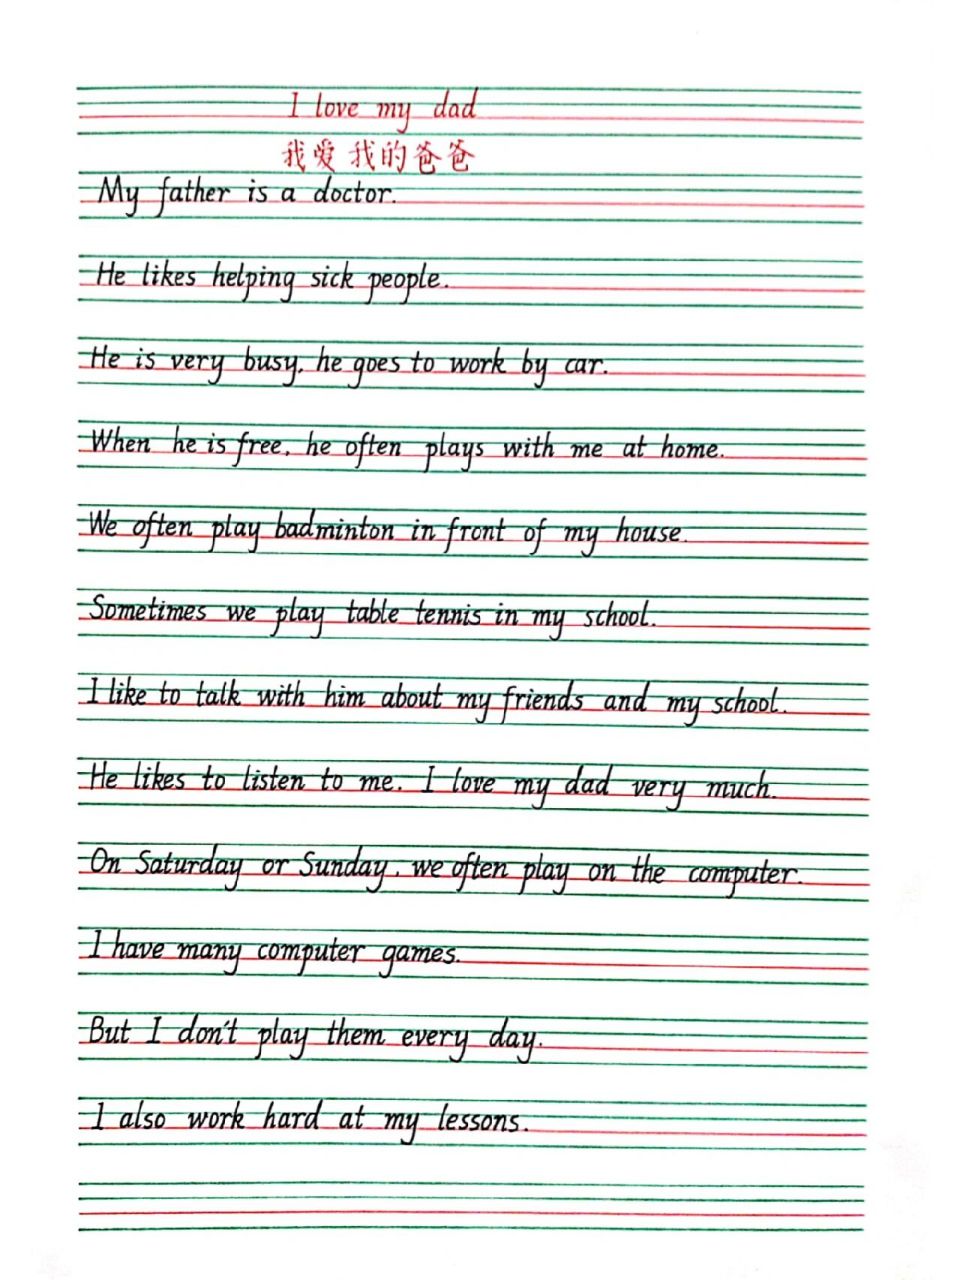 I love my dad
我爱我的爸爸
My father is a doctor.
He likes helping sick people.
He is very busy, he goes to work by car.
When he is free, he often plays with me at home.
We often play badminton in front of my house.
Sometimes we play table tennis in my school.
I like to talk with him about my friends and my school.
He likes to listen to me. I love my dad very much.
On Saturday or Sunday, we often play on the computer.
I have many computer games.
But I don't play them every day.
I also work hard at my lessons.